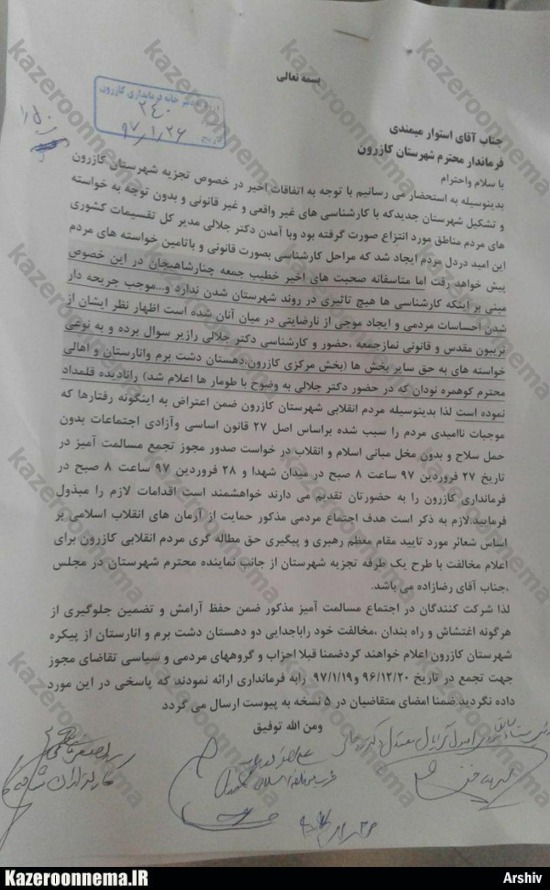 بسمه تعالی
دبیرخانه فرمانداری کازرون
۲۴۰
تاریخ ۹۷/۱/۲۶
جناب آقای استوار میمندی
فرماندار محترم شهرستان کازرون
با سلام واحترام
بدینوسیله به استحضار می رسانیم با توجه به اتفاقات اخیر در خصوص تجزیه شهرستان کازرون
و تشکیل شهرستان جدیدکه با کارشناسی های غیر واقعی و غیر قانونی و بدون توجه به خواسته
های مردم مناطق مورد انتزاع صورت گرفته بود وبا آمدن دکتر جلالی مدیر کل تقسیمات کشوری
این امید دردل مردم ایجاد شد که مراحل کارشناسی بصورت قانونی و باتامین خواسته های مردم
پیش خواهد رفت اما متاسفانه صحبت های اخیر خطیب جمعه چنارشاهیجان در این خصوص
مبنی براینکه کارشناسی ها هیچ تاثیری در روند شهرستان شدن ندارد و...موجب جریحه دار
شدن احساسات مردمی و ایجاد موجی از نارضایتی در میان آنان شده است اظهار نظر ایشان از
تریبون مقدس و قانونی نمازجمعه ،حضور و کارشناسی دکتر جلالی رازیر سوال برده و به نوعی
خواسته های به حق سایر بخش ها (بخش مرکزی کازرون:دهستان دشت برم وانارستان و اهالی
محترم کوهمره نودان که در حضور دکتر جلالی به وضوح با طومار ها اعلام شد) رانادیده قلمداد
نموده است لذا بدینوسیله مردم انقلابی شهرستان کازرون ضمن اعتراض به اینگونه رفتارها که
موجبات ناامیدی مردم را سبب شده براساس اصل ۲۷ قانون اساسی وآزادی اجتماعات بدون
حمل سلاح و بدون مخل مبانی اسلام و انقلاب در خواست صدور مجوز تجمع مسالمت آمیز در
تاریخ ۲۷ فروردین ۹۷ ساعت ۸ صبح در میدان شهدا و ۲۸ فروردین ۹۷ ساعت ۸ صبح در
فرمانداری کازرون را به حضورتان تقدیم می دارند خواهشمند است اقدامات لازم را مبذول
فرمایید.لازم به ذکر است هدف اجتماع مردمی مذکور حمایت از آرمان های انقلاب اسلامی بر
اساس شعائر مورد تایید مقام معظم رهبری و پیگیری حق مطاله گری مردم انقلابی کازرون برای
اعلام مخالفت با طرح یک طرفه تجزیه شهرستان از جانب نماینده محترم شهرستان در مجلس
،جناب آقای رضازاده می باشد.
لذا شرکت کنندگان در اجتماع مسالمت آمیز مذکور ضمن حفظ آرامش و تضمین جلوگیری از
هرگونه اغتشاش و راه بندان ،مخالفت خود راباجدایی دو دهستان دشت برم و انارستان از پیکره
شهرستان کازرون اعلام خواهند کردضمنا قبلا احزاب و گروههای مردمی و سیاسی تقاضای مجوز
جهت تجمع در تاریخ ۹۶/۱۲/۲۰ و۹۷/۱/۱۹ رابه فرمانداری ارائه نمودند که پاسخی در این مورد
داده نگردید.ضمنا امضای متقاضیان در ۵ نسخه به پیوست ارسال می گردد
ومن الله توفیق
kazeroonnema
Kazeroonnema.IR
Arshiv